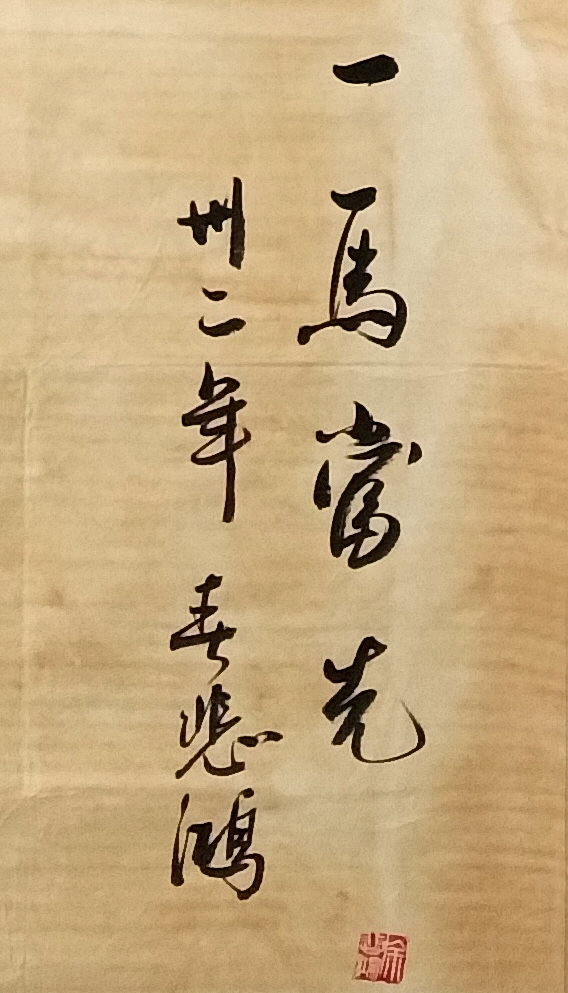 一馬當先
卅二年春悲鴻